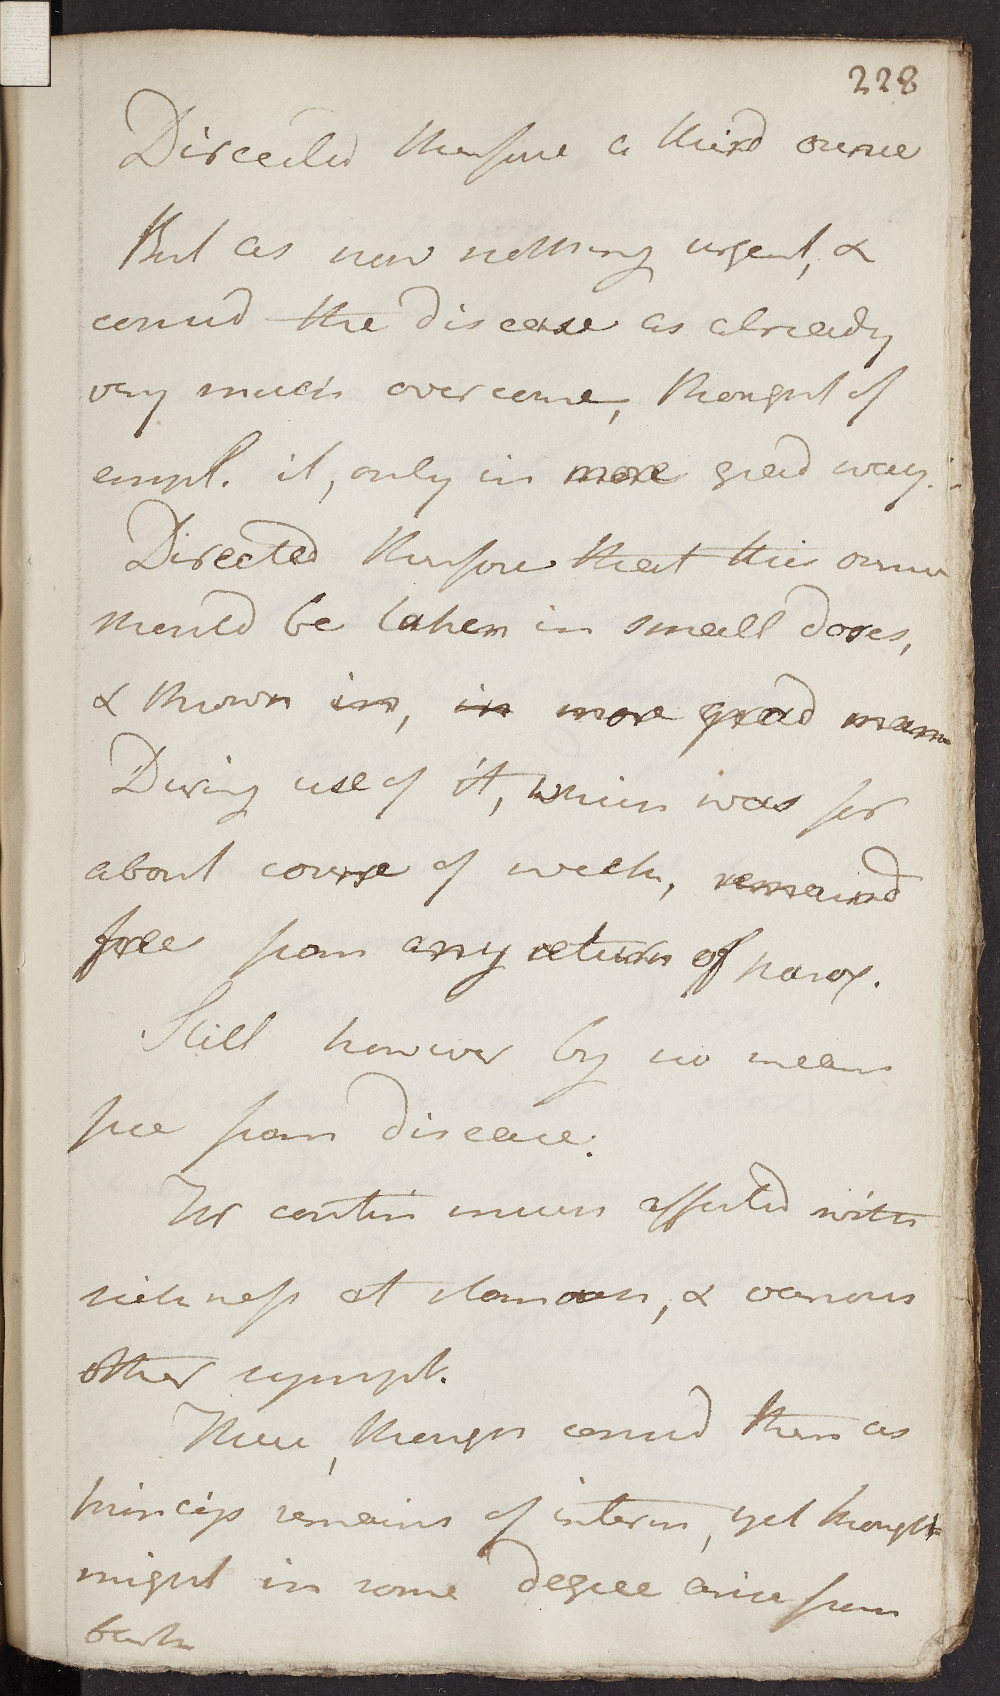 228
Directed therefore a third ounce
But as now nothing urgent, &
consid the disease as already
very much overcome, thought of
empl. it, only in more grad way.
Directed therefore that this ounce
should be taken in small doses,
& thrown in, in more grad mann
During use of it, which was for
about course of week, remaind
free from any return of parox.
Still however by no means
free from disease.
For contin much affected with
sickness at stomach, & various
other sympt.
These, though consid them as
princip remains of interm, yet thought
might in some degree arise from
bark